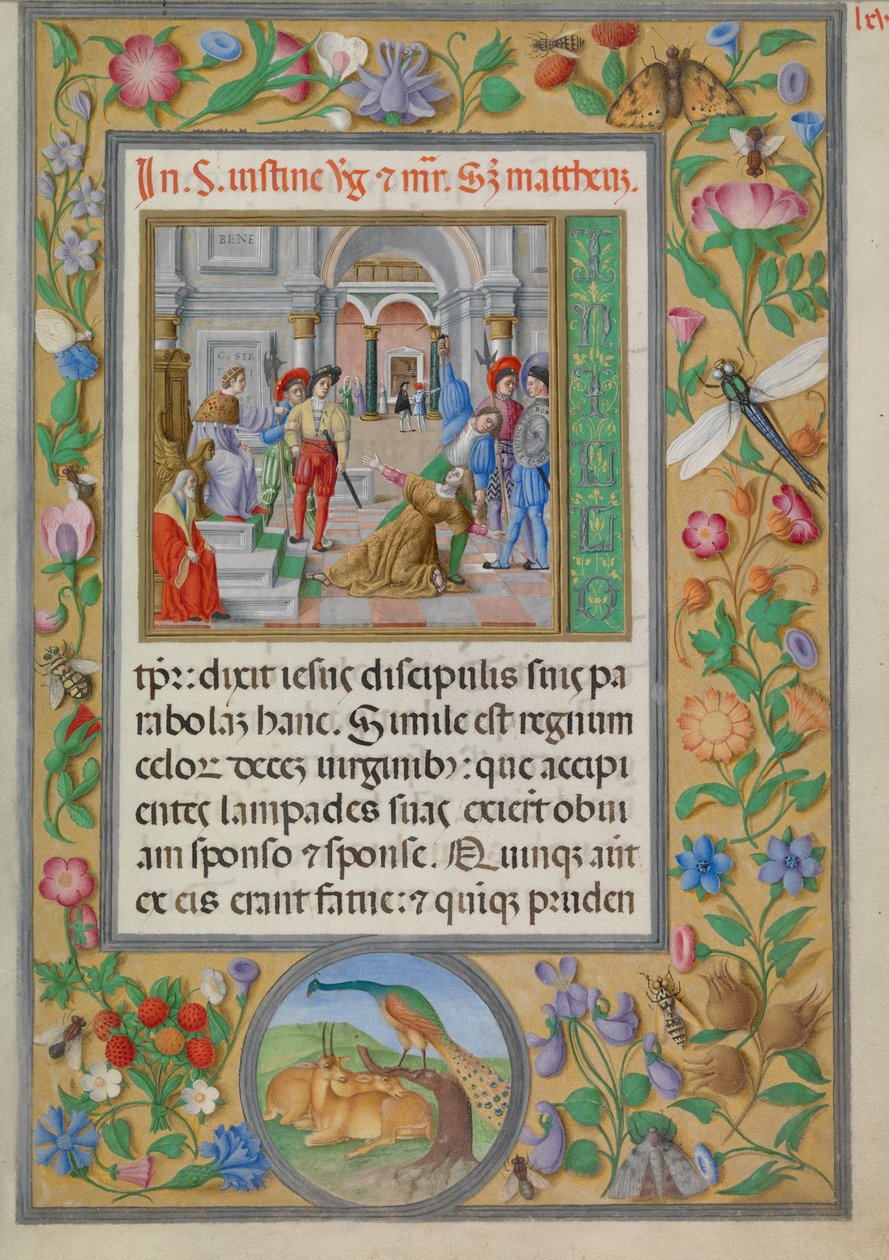 lx
In. S. iustine Vg ⁊ mr̄. Sꝫ mattheuꝫ.
BENE
C. BER
IN ILLO
tp̄r: dixit iesus discipulis suis pa
rabolaꝫ hanc. Simile est regnum
celoꝝ deceꝫ uirginibꝰ: que accipi
entes lampades suas exiert̄ obui
am sponso ⁊ sponse. Quinqꝫ aūt
ex eis erant fatue: ⁊ quīqꝫ pruden